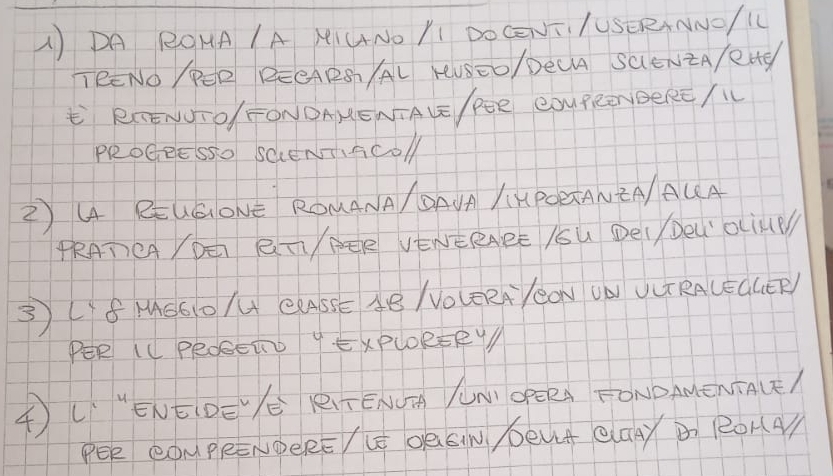 1) DA ROMA / A MILANO / I DOCENTI / USERANNO / IL
TRENO / PER RECARSI / AL MUSEO / DELLA SCIENZA / CHE /
È RITENUTO / FONDAMENTALE / PER COMPRENDERE / IL
PROGRESSO SCIENTIFICO //
2) LA RELIGIONE ROMANA / DAVA / IMPORTANZA / ALLA
PRATICA / DEI RITI / PER VENERARE / GLI DEI / DELL'OLIMPO //
3) L'8 MAGGIO / LA CLASSE 1B / VOLERÀ / CON UN ULTRALEGGERO /
PER IL PROGETTO "EXPLORER" //
4) L' "ENEIDE" / È RITENUTA / UN'OPERA FONDAMENTALE /
PER COMPRENDERE / LE ORIGINI / DELLA CITTÀ / DI ROMA //